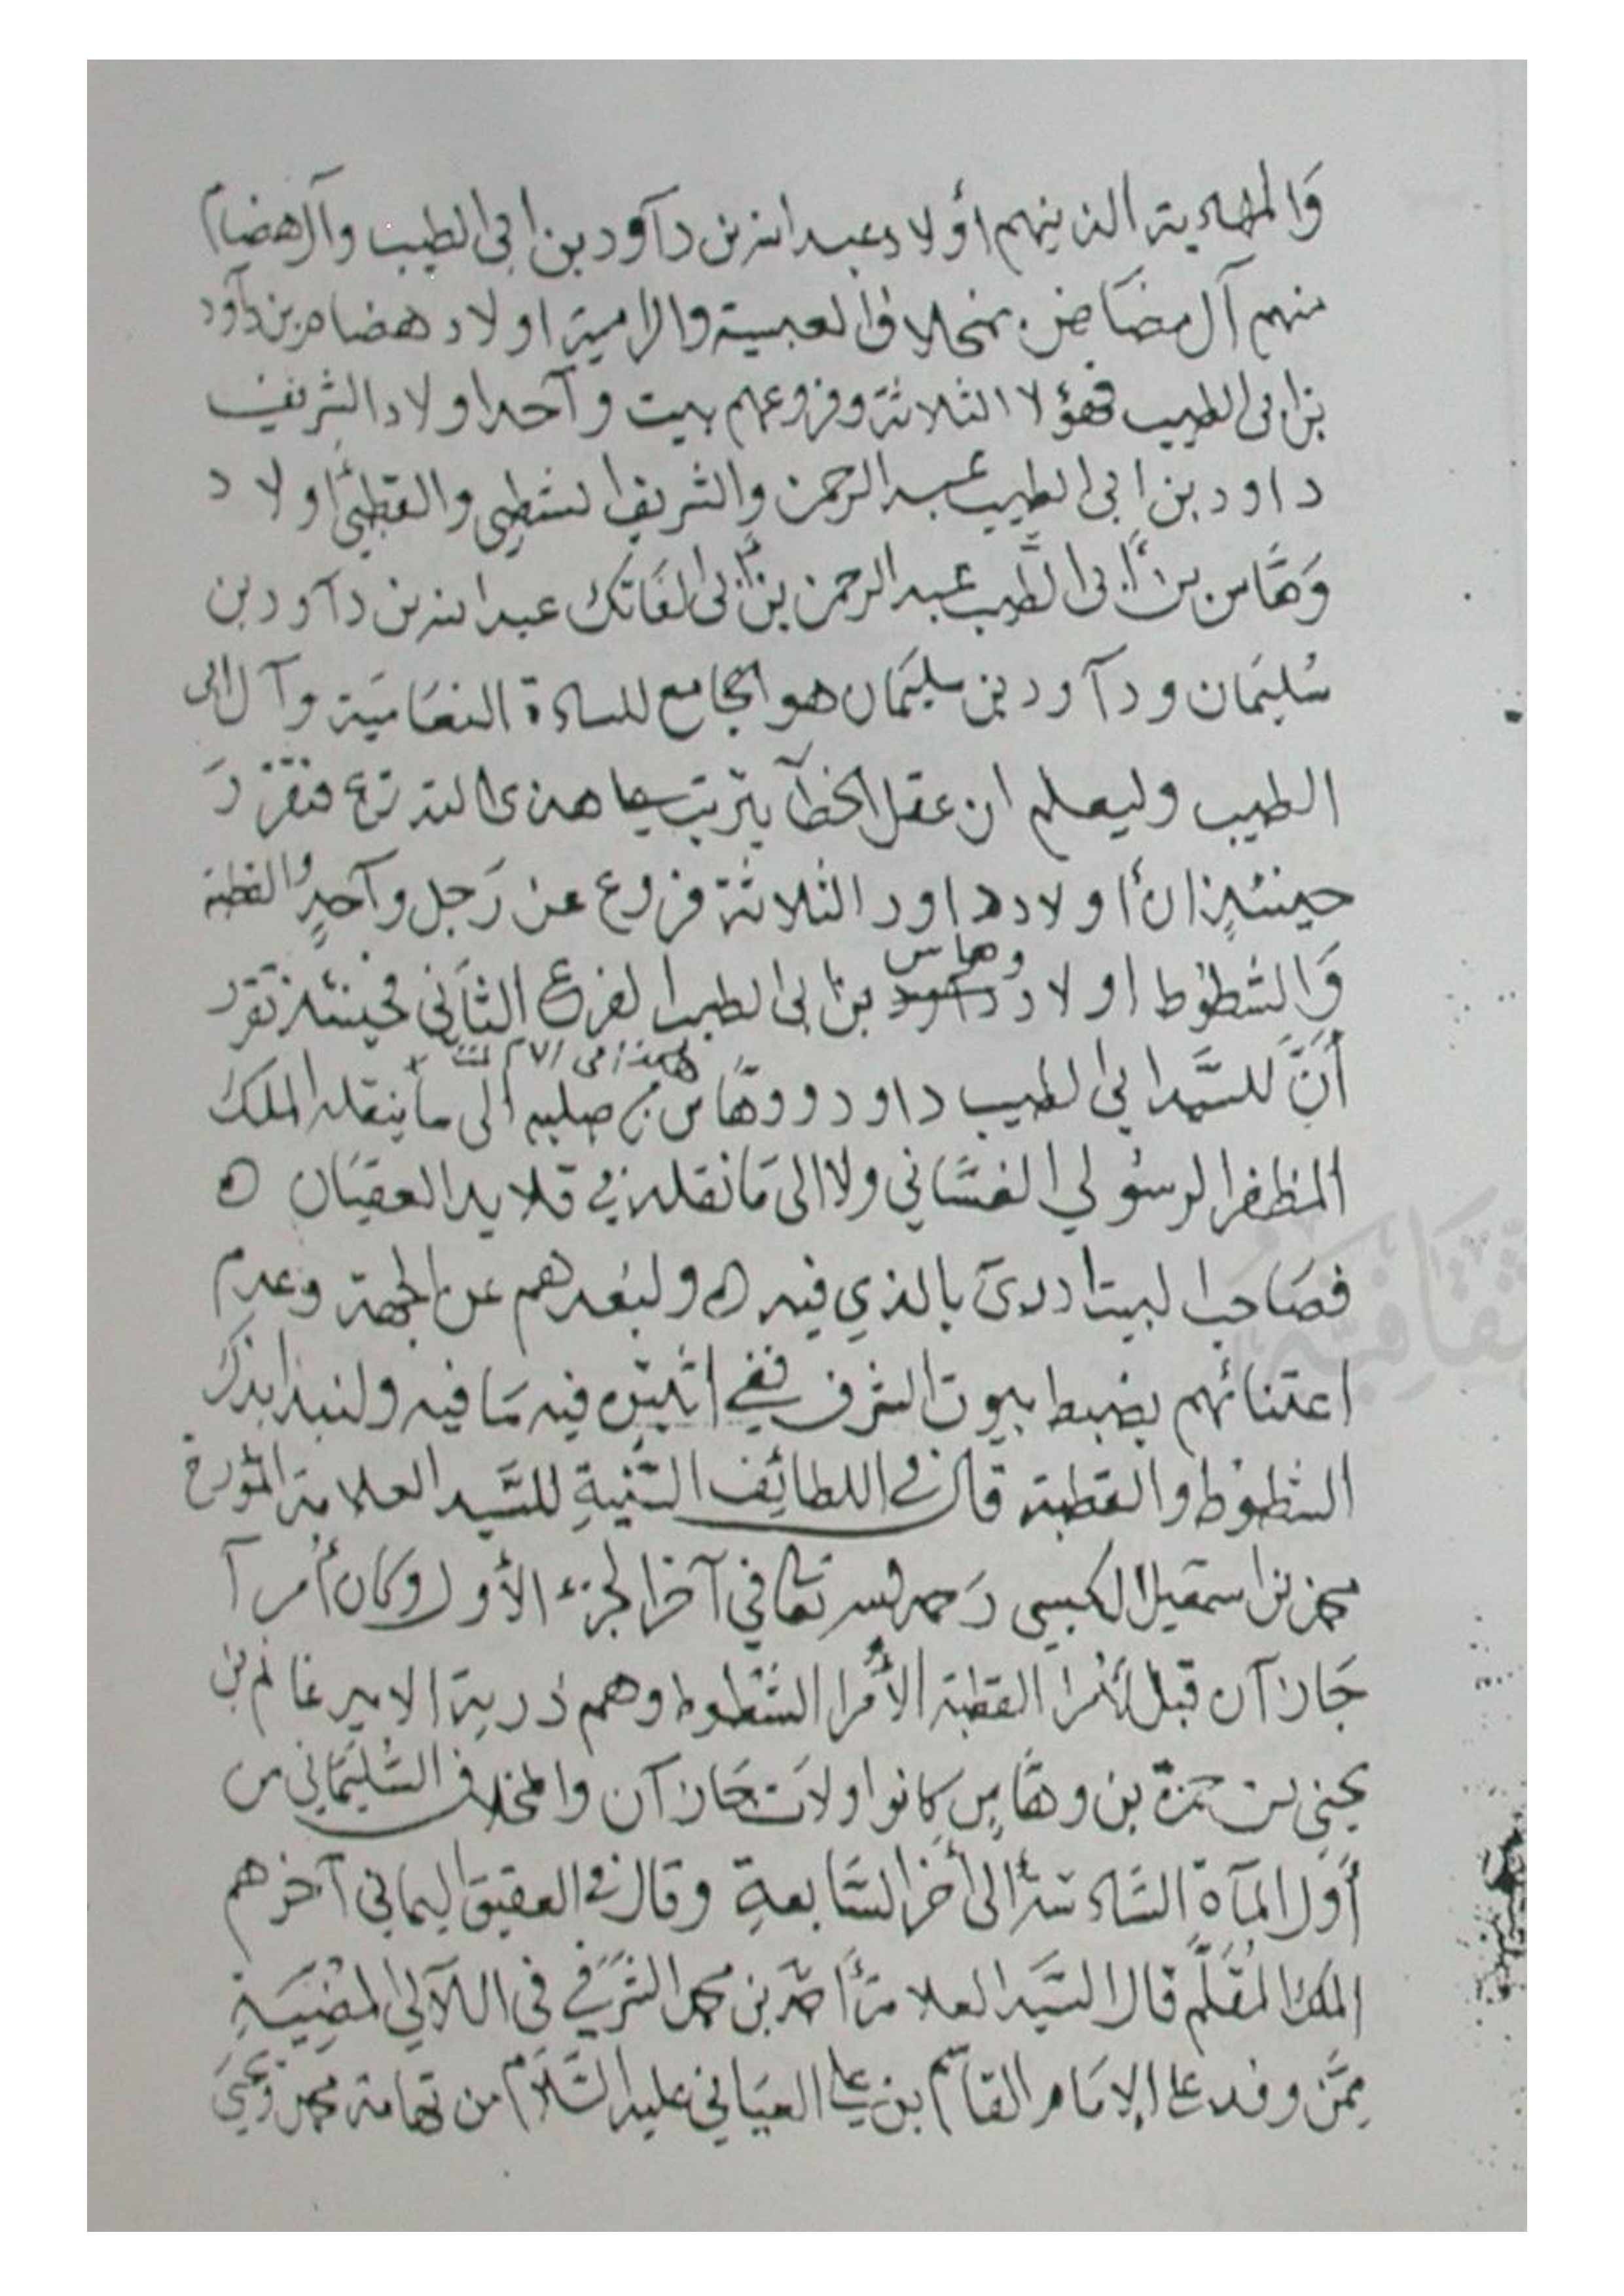 وَالمهادية الذينهم أولاد عبدالله بن دآود بن ابى الطيب وآلهضام
منهم آل مضَاض بمخلاف العبسية والرامية اولاد هضام بن دآود
بن ابى الطيب فهؤلا الثلاثة وفروعهم بيت وآحد اولاد الشريف
داود بن ابى الطيب عبدالرحمن والشريف الشطي والقطبي اولاد
وَهَّاس بن أبى الطَّيب عبدالرحمن بن أبى الفَاتك عبدالله بن دآود بن
سُليمَان ودآود بن سليمَان هو الجامع للسادة النعَاميَة وآل ابى
الطيب وليعلم ان عقل الخطآ يترتب على هذى التدرع فتقرر
حينئذٍ ان أولاد داود الثلاثة فروع عن رَجل وآحدٍ والقطبة
وَالشطوُط اولاد وهاس بن ابى الطيب الفرع الثاَنى فحينئذ تقرر
أنَّ للسَّيد ابي الطيب داود ووهَّاس من صلبه الى ما ينقله الملك
المظفر الرسوُلي الغسَّاني ولا الى مَا نقله في قلايد العقيَان ه
فصَاحب البيت ادرىَ بالذي فيه ه ولبُعدهم عن الجهة وعدم
اعتنائهم بضبط بيوت الشرف ففي اثليثَ فيه مَا فيه ولنبدا بذكر
الشطوُط والقطبة قال في اللطائِف السَّنيةِ للسَّيد العلامة المؤرخ
محمد بن اسمعيل الكبسي رَحمه الله تعالى في آخر الجزء الأول وكان أمرآ
جَازآن قبل أمُرا القطبة الأمُرا الشُطوط وهم ذرية الامير غانم بن
يحيىِ بن حمزة بن وهَّاسٍ كانوا ولاَت جَازآن والمخلاف السُّليمَاني من
أوَل المآة السَّادسَة إلى أخر السَّابعةِ وقال في العقيق اليماني آخرهم
الملك المُقلَّم قال السَّيَد العلامة أحمَد بن محمد الشرَفي في اللآلي المضيَئةِ
مِمَّن وفد على الإمَام القاسم بن علي العيَاني عليه السَّلام من تهامة محمد ويحيَى